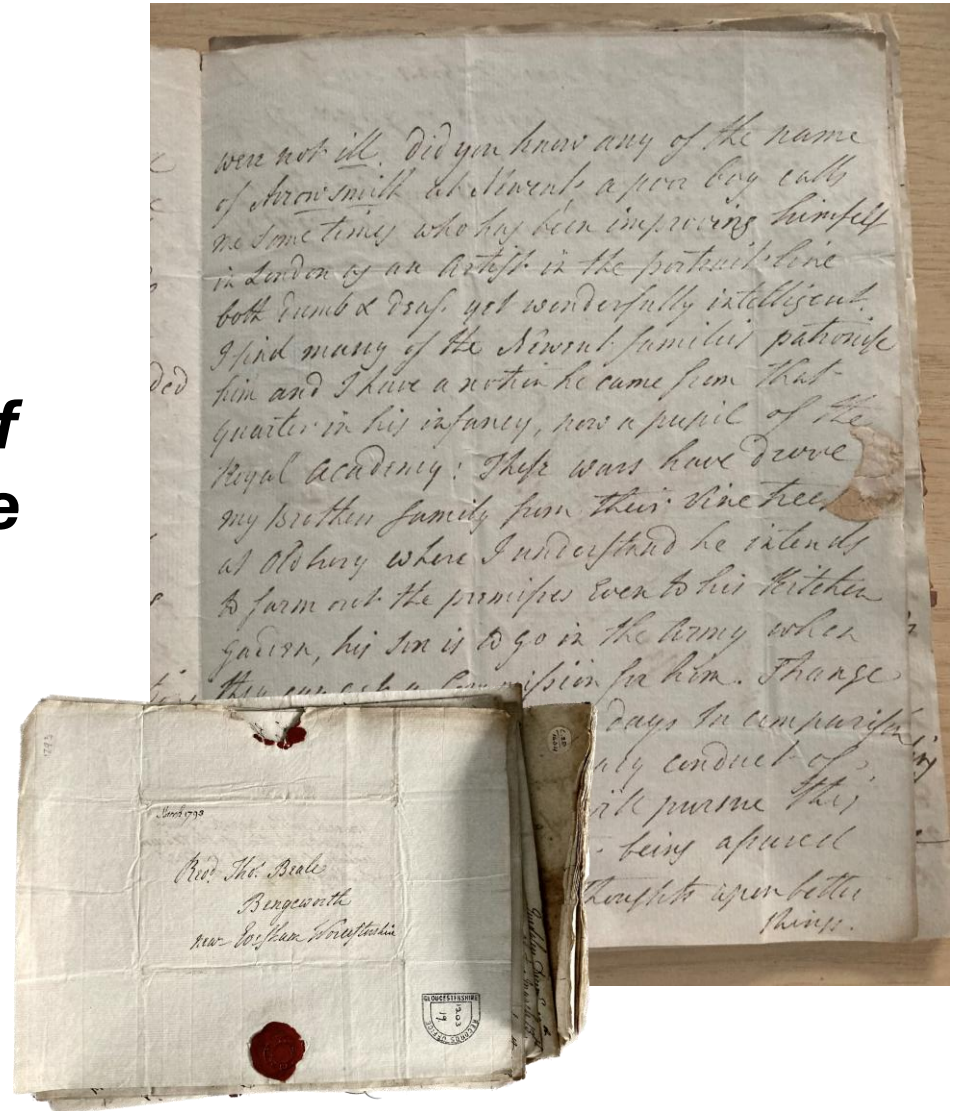 f
e
were not ill. did you know any of the name
of Arrowsmith at Newent a poor boy calls
me some times who has been improving himself
in London as an Artist in the portrait line
both dumb & deaf. yet wonderfully intelligent.
I find many of the Newent families patronise
him and I have a notion he came from that
quarter in his infancy, now a pupil of the
Royal Academy: These wars have drove
my Brothers family from their Vine tree
at Oldbury where I understand he intends
to farm out the premises Even to his Kitchen
garden, his son is to go in the Army when
they can get a Commission for him. Thange
days in comparison
conduct of
pursue this
being assured
thoughts upon better
things.
ded
March 1798
Revd. Thos. Beale
Bengeworth
near Evesham Worcestershire
GLOUCESTERSHIRE
RECORDS OFFICE